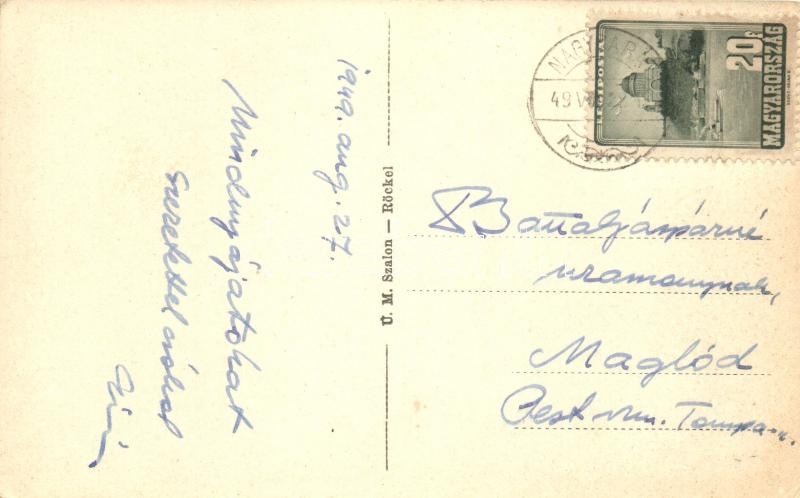 1949. aug. 27.
Mindnyájatokat
szeretettel csókol
Ú. M. Szalon — Röckel
49 V
LÉGIPOSTA
20f
MAGYARORSZÁG
Battaljáspárné
uramanynak,
Maglód
Pest vm. Tompa u.